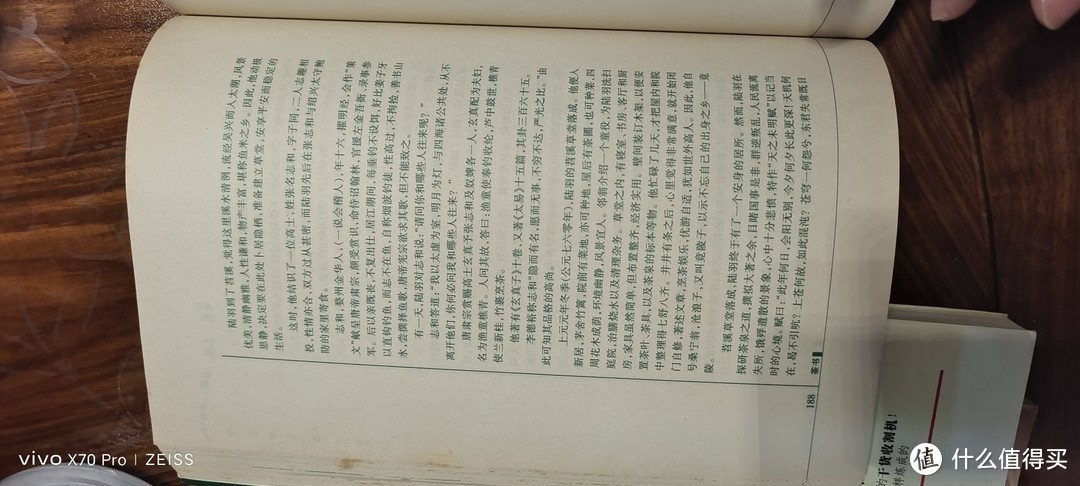 陆羽到了苕溪,觉得这里溪水清洌,流经吴兴而入太湖,风景
优美,清静幽雅,人性谦和,物产丰富,堪称鱼米之乡。因此,他动极
思静,决定要在此处卜居隐栖,准备建立草堂,安享平安而稳定的
生活。
这时,他结识了一位高士,姓张名志和,字子同;二人志趣相
投,性情亦合,双方过从甚密,而陆羽先后在张志和与绍兴太守鲍
防的家里寄食。
志和,婺州金华人,(一说会稽人),年十六,擢明经,会作“策
文”献呈唐帝肃宗,颇受赏识,命待诏翰林,官授左金吾卫、录事参
军。后以亲既丧,不复出仕,居江湖间,每垂钓不设饵,好比姜子牙
以直钩钓鱼,而志不在鱼,自称烟波钓徒,性高过,不拘捡,善书山
水,尝撰择鱼歌,唐帝宪宗欲求其歌,但不能致之。
有一天,陆羽对志和说:“请问你和哪些人往来呢?”
志和答道:“我以太虚为室,明月为灯,与四海诸公共处,从不
离开他们,你何必问我和哪些人往来?”
唐肃宗赏赐高士玄真予张志和及奴婢各一人,玄真配为夫妇,
名为渔童樵青。人问其故,答曰:渔童使奉钓收纶,芦中鼓世,樵青
使兰薪桂,竹裹烹茶。
他著有《玄真子》十二卷,又著《太易》十五篇,其卦三百六十五。
李德裕称志和“隐而有名,愿而无事,不穷不达,严光之比。”由
此可知其品格的高尚。
上元元年冬季(公元七六零年),陆羽的苕溪草堂落成。他便人
新居,茅舍竹篱,院前有菜地,亦可种地,屋后有茶圃,也可种菜,四
周花木成荫,环境幽静,风景宜人。邻翁介绍一个童役,为陆羽洗扫
庭院,治膳烧水以及清理杂务。草堂之内,有寝室、书房、客厅和厨
房,家具虽然简单,但布置整齐,经济实用。壁间装订木架,以便安
置茶叶、茶具,以及茶泉的标本等物。他忙碌了几天,才把屋内和院
中整理得七舒八齐。井井有条之后,心里觉得非常满意,就开始闭
门自修,著述文章,烹茶娱乐,优游自适,犹如世外高人。因此,他自
号桑宁翁,沧浪子,又叫竟陵子,以示不忘自己的出身之乡——竟
陵。
苕溪草堂落成,陆羽终于有了一个安身的居所。然而,陆羽在
探研茶泉之道,撰拟大著之余,目睹国事是非,群逆叛乱,人民流离
失所,饿殍遭散的景象,心中十分悲愤,特作“天之未明赋”以记当
时的心境。赋曰:“此年何日,会阳无别,今夕何夕长此更深!天机何
在,曷不引吭?上苍何故,如此混沌?苍穹一何怨兮,东君失常既日
188 茶书
的干货收割机!
样炼成的
vivo X70 Pro | ZEISS
值 什么值得买